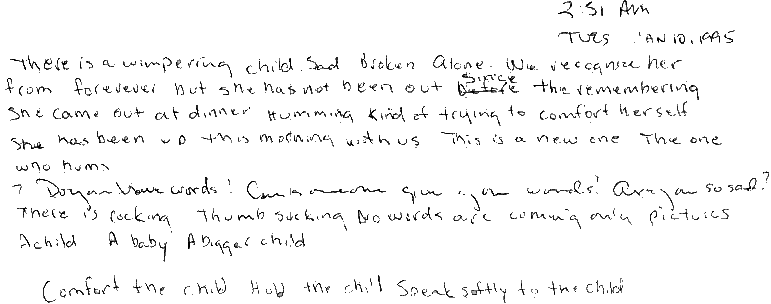 2:51 AM
TUES JAN 10, 1995
There is a wimpering child. Sad Broken Alone. We reccognise her
from forevever but she has not been out since the remembering
She came out at dinner Humming Kind of trying to comfort Herself
She has been up this morning with us This is a new one The one
who hums
? Do you have words? Can someone give you words? Are you so sad?
There is rocking Thumb sucking No words are coming only pictures
A child A baby A bigger child
Comfort the child Hold the child Speak softly to the child